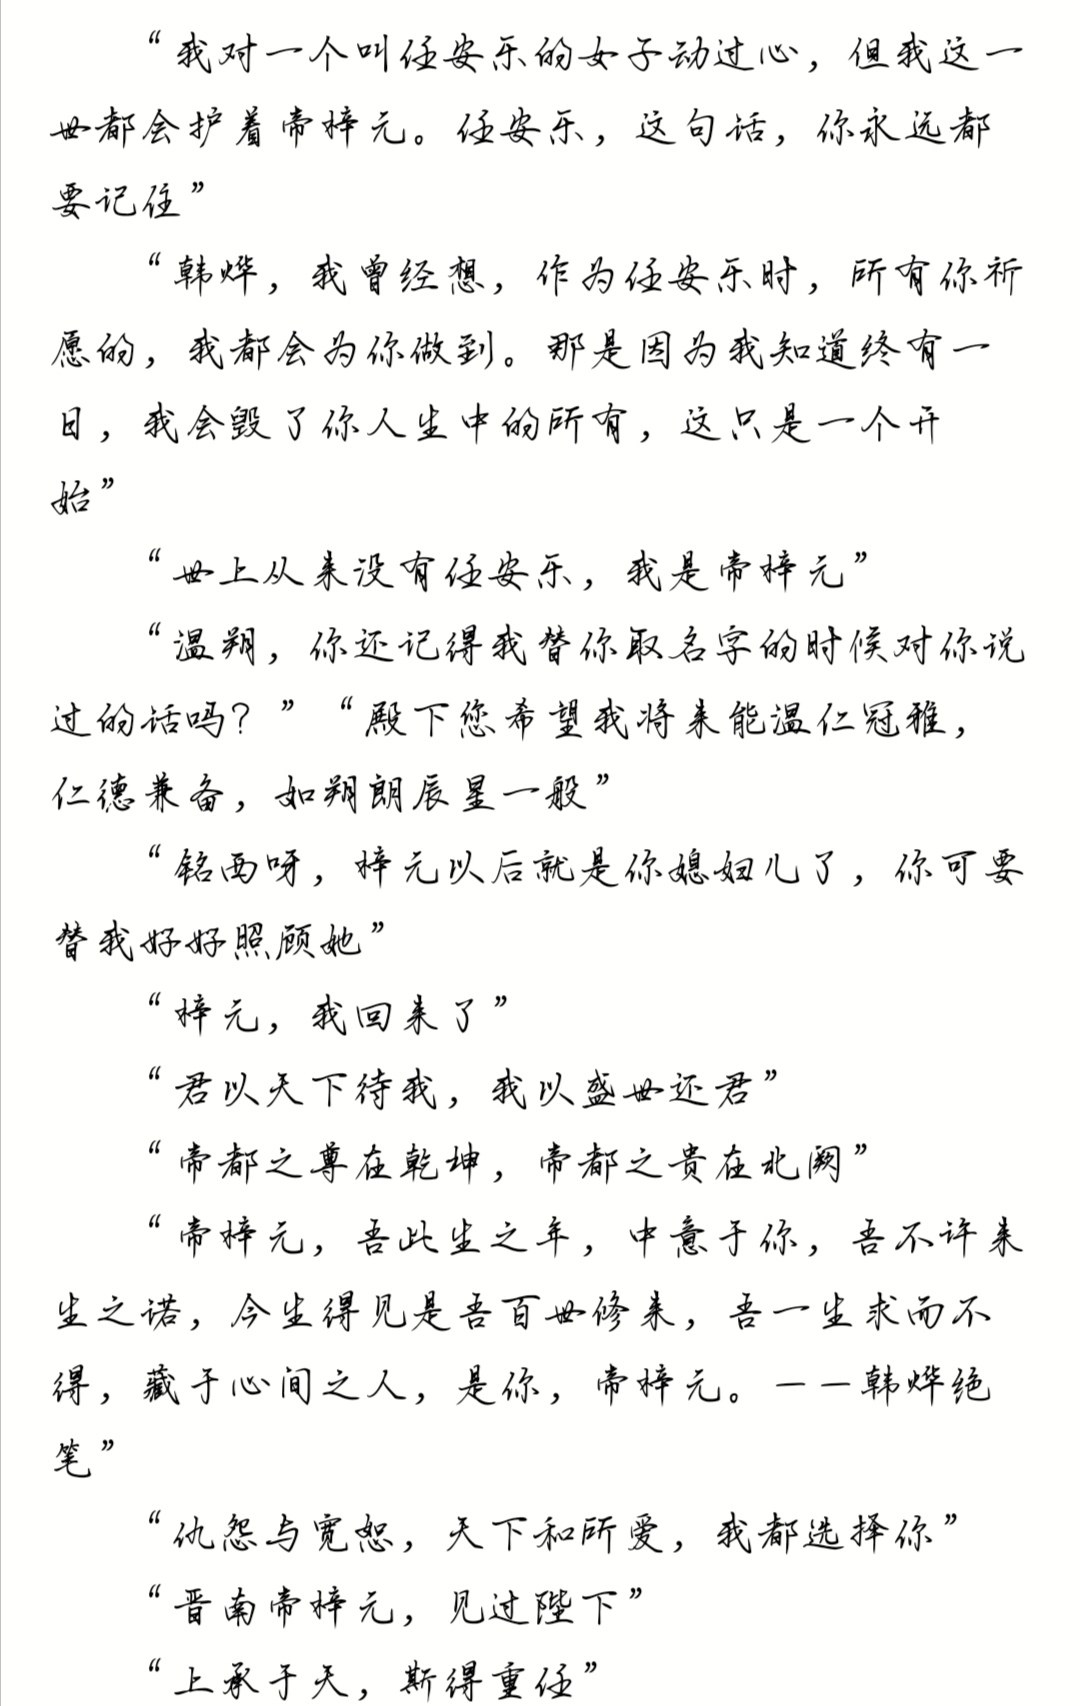 “我对一个叫任安乐的女子动过心，但我这一
世都会护着帝梓元。任安乐，这句话，你永远都
要记住”
“韩烨，我曾经想，作为任安乐时，所有你祈
愿的，我都会为你做到。那是因为我知道终有一
日，我会毁了你人生中的所有，这只是一个开
始”
“世上从来没有任安乐，我是帝梓元”
“温朔，你还记得我替你取名字的时候对你说
过的话吗？”“殿下您希望我将来能温仁冠雅，
仁德兼备，如朔朗辰星一般”
“铭西呀，梓元以后就是你媳妇儿了，你可要
替我好好照顾她”
“梓元，我回来了”
“君以天下待我，我以盛世还君”
“帝都之尊在乾坤，帝都之贵在北阙”
“帝梓元，吾此生之年，中意于你，吾不许来
生之诺，今生得见是吾百世修来，吾一生求而不
得，藏于心间之人，是你，帝梓元。——韩烨绝
笔”
“仇怨与宽恕，天下和所爱，我都选择你”
“晋南帝梓元，见过陛下”
“上承于天，斯得重任”